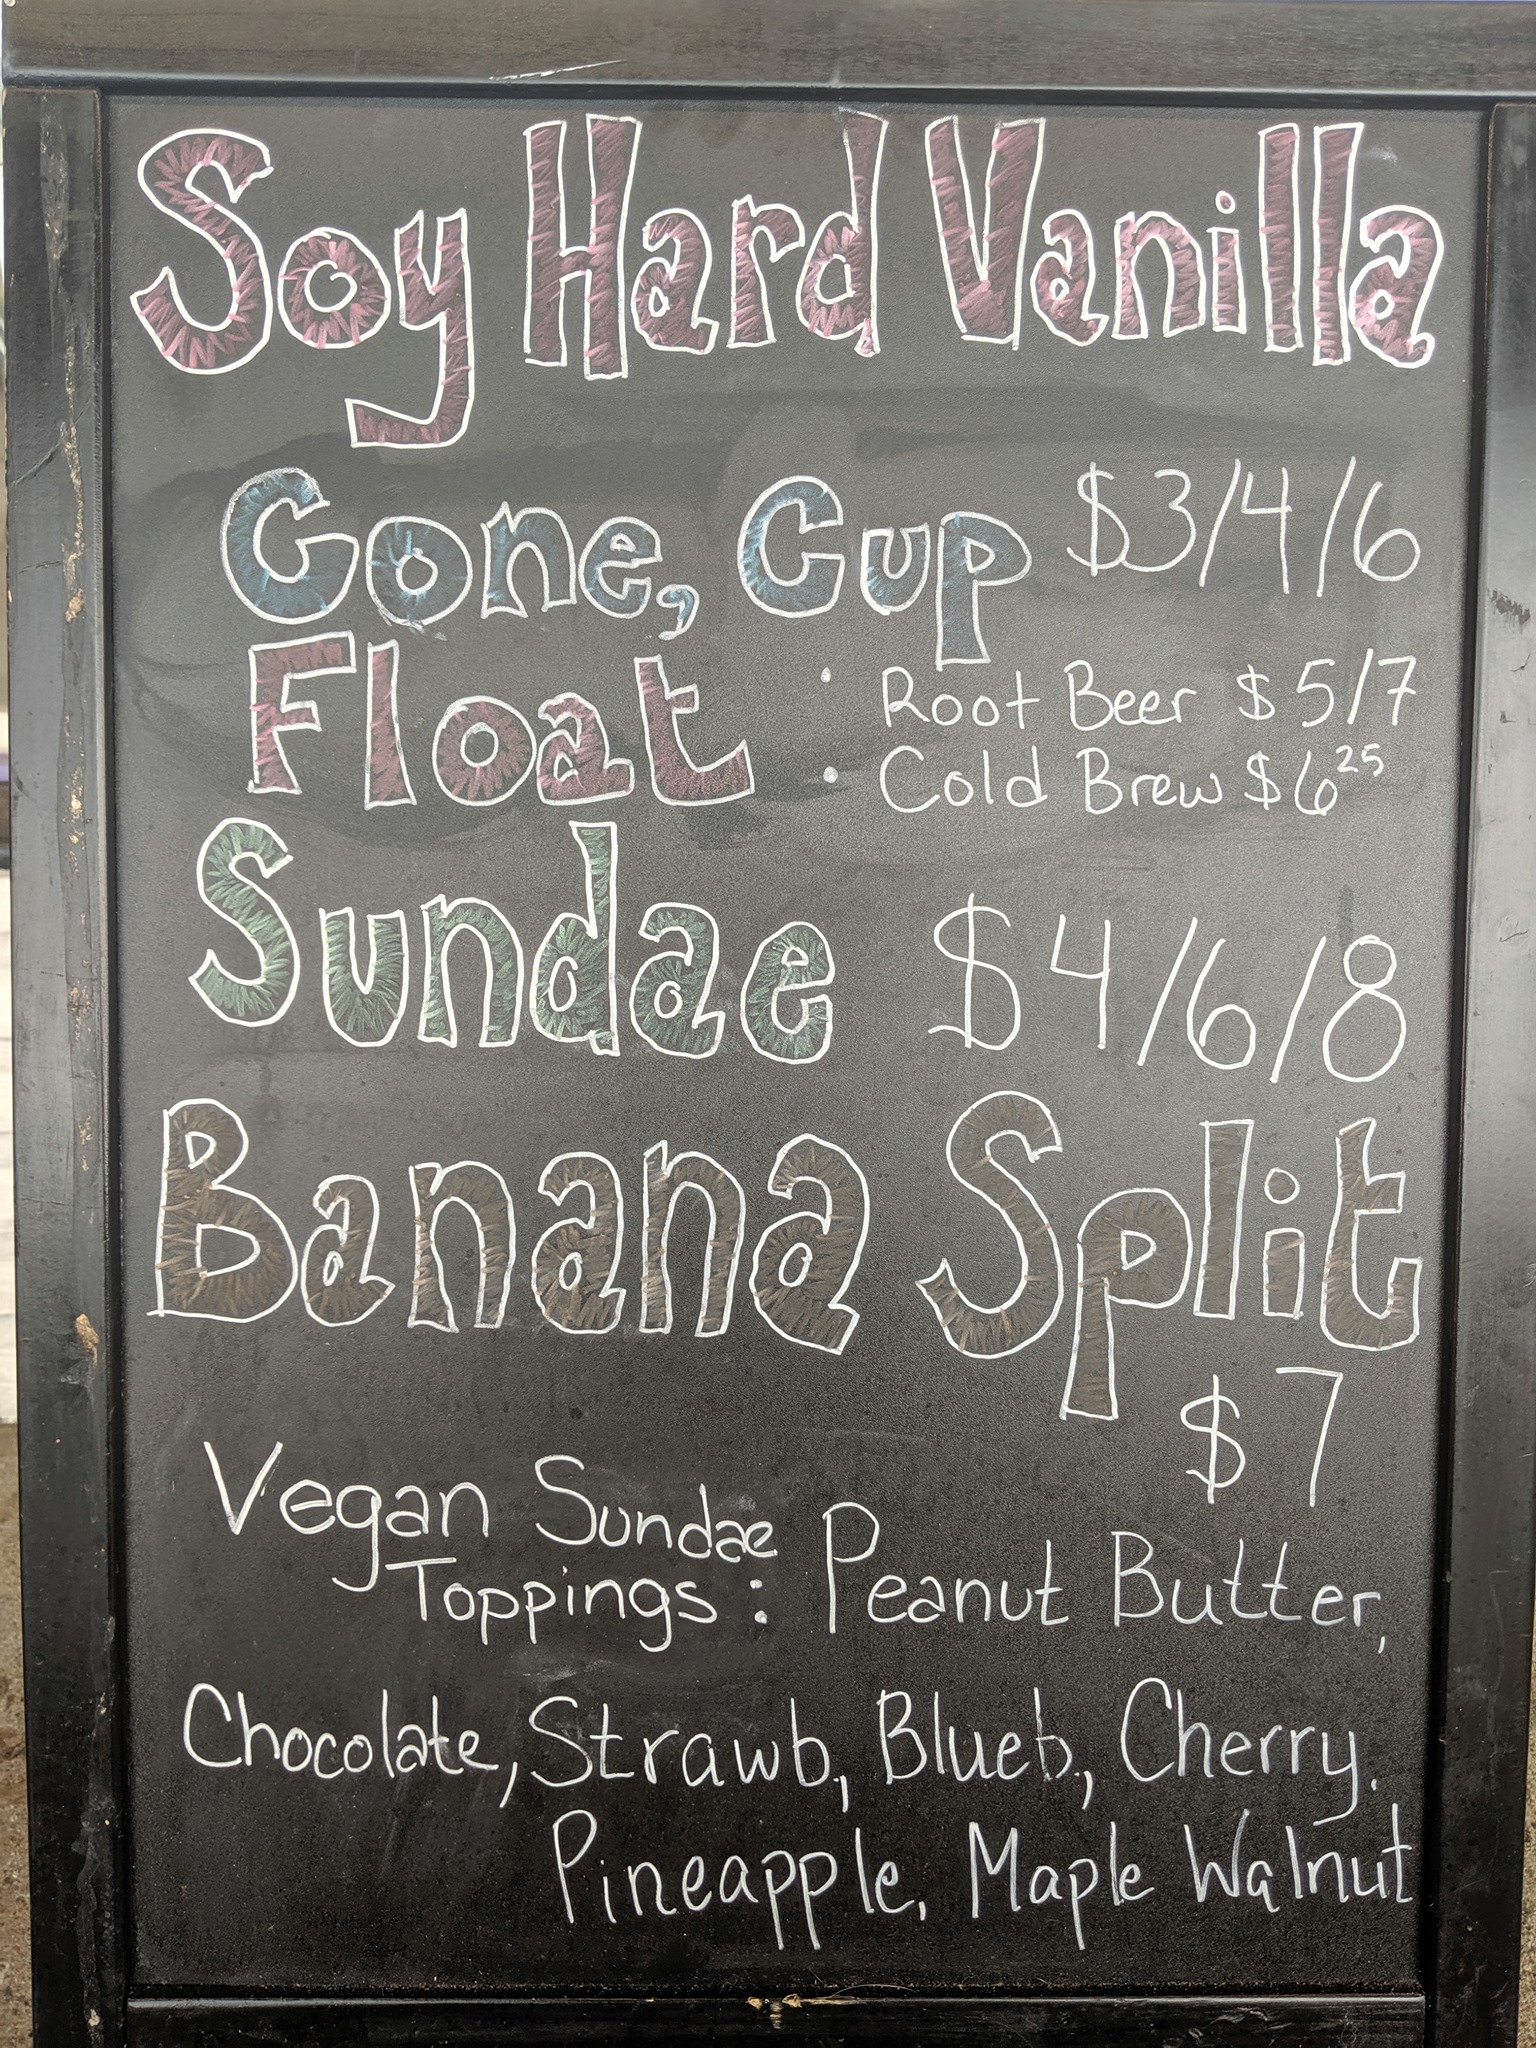 Soy Hard Vanilla
Cone, Cup $3/4/6
Float • Root Beer $5/7
• Cold Brew $6²⁵
Sundae $4/6/8
Banana Split
$7
Vegan Sundae
Toppings: Peanut Butter,
Chocolate, Strawb, Blueb, Cherry,
Pineapple, Maple Walnut